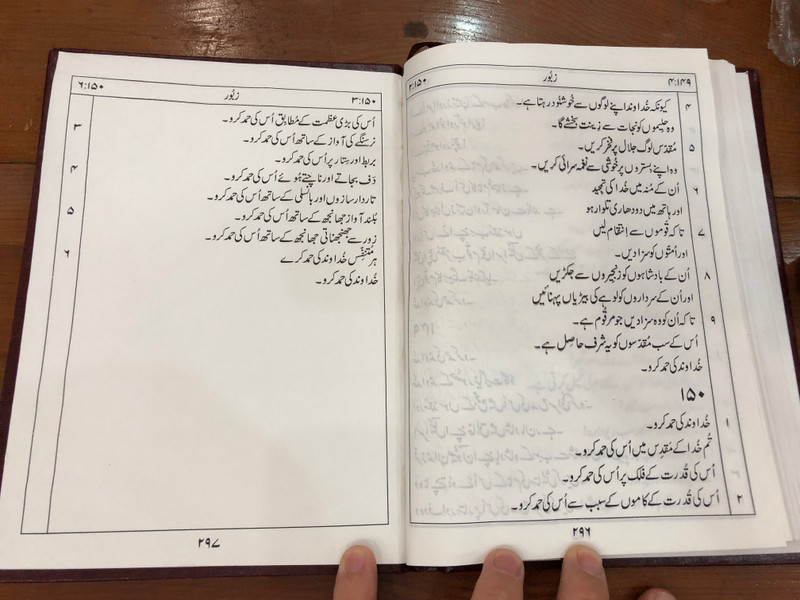 ۴:۱۴۹ زبُور ۲:۱۵۰
۴ کیونکہ خُداوند اپنے لوگوں سے خُوشنُود رہتا ہے۔
وہ حلیِموں کو نجات سے زِینت بخشے گا۔
۵ مُقدّس لوگ جلال پر فخر کریں۔
وہ اپنے بِستروں پر خُوشی سے نغمہ سرائی کریں۔
۶ اُن کے مُنہ میں خُدا کی تمجِید
اور ہاتھ میں دو دھاری تلوار ہو
۷ تاکہ قَوموں سے اِنتقام لیں
اور اُمّتوں کو سزا دیں۔
۸ اُن کے بادشاہوں کو زنجِیروں سے جکڑیں
اور اُن کے سرداروں کو لوہے کی بیڑیاں پہنائیں
۹ تاکہ اُن کو وہ سزا دیں جو مرقُوم ہے۔
اُس کے سب مُقدّسوں کو یہ شرف حاصِل ہے۔
خُداوند کی حمد کرو۔
۱۵۰
۱ خُداوند کی حمد کرو۔
تُم خُدا کے مَقدِس میں اُس کی حمد کرو۔
اُس کی قُدرت کے فلک پر اُس کی حمد کرو۔
۲ اُس کی قُدرت کے کاموں کے سبب سے اُس کی حمد کرو۔
۲۹۶
۳:۱۵۰ زبُور ۶:۱۵۰
اُس کی بڑی عظمت کے مُطابِق اُس کی حمد کرو۔
۳ نرسِنگے کی آواز کے ساتھ اُس کی حمد کرو۔
بربط اور سِتار پر اُس کی حمد کرو۔
۴ دَف بجاتے اور ناچتے ہُوئے اُس کی حمد کرو۔
تاردار سازوں اور بانسلی کے ساتھ اُس کی حمد کرو۔
۵ بُلند آواز جھانجھ کے ساتھ اُس کی حمد کرو۔
زور سے جھنجھناتی جھانجھ کے ساتھ اُس کی حمد کرو۔
۶ ہر مُتنفِّس خُداوند کی حمد کرے
خُداوند کی حمد کرو۔
۲۹۷